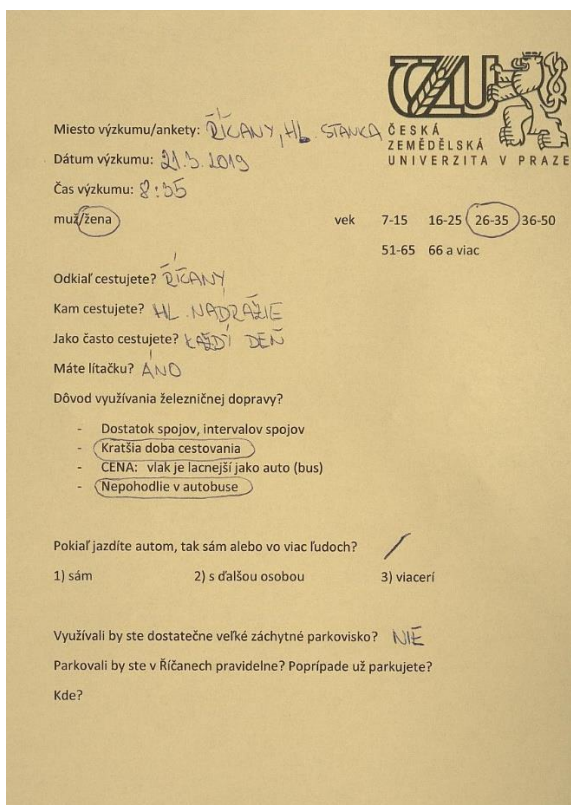 ČZU
ČESKÁ
ZEMĚDĚLSKÁ
UNIVERZITA V PRAZE
Miesto výzkumu/ankety: ŘÍČANY, HL. STANICA
Dátum výzkumu: 21.3.2019
Čas výzkumu: 8:35
muž/žena
vek 7-15 16-25 26-35 36-50
51-65 66 a viac
Odkiaľ cestujete? ŘÍČANY
Kam cestujete? HL. NADRAŽIE
Jako často cestujete? KAŽDÍ DEŇ
Máte lítačku? ÁNO
Dôvod využívania železničnej dopravy?
- Dostatok spojov, intervalov spojov
- Kratšia doba cestovania
- CENA: vlak je lacnejší jako auto (bus)
- Nepohodlie v autobuse
Pokiaľ jazdíte autom, tak sám alebo vo viac ľudoch? /
1) sám 2) s ďalšou osobou 3) viacerí
Využívali by ste dostatečne veľké záchytné parkovisko? NIE
Parkovali by ste v Říčanech pravidelne? Poprípade už parkujete?
Kde?